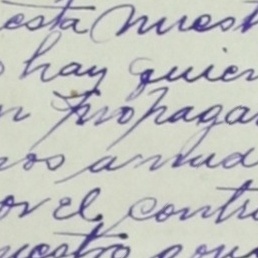 esta nuest
hay quien
n propagan
nos a nud
or el contra
uestro